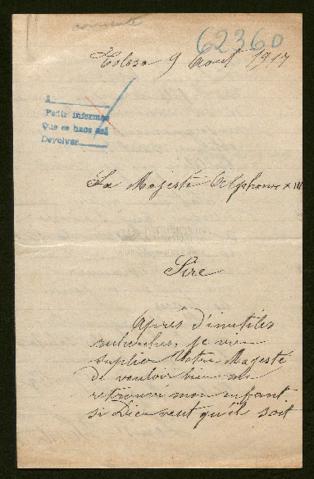 62360
Tolosa 9 Aout 1917
A
Pedir informes
Que se haga asi
Devolver
Sa Majesté Alphonse XIII
Sire
Après d'inutiles
recherches, je viens
suplier Votre Majesté
de vouloir bien me
retrouver mon enfant
si Dieu veut qu'il soit